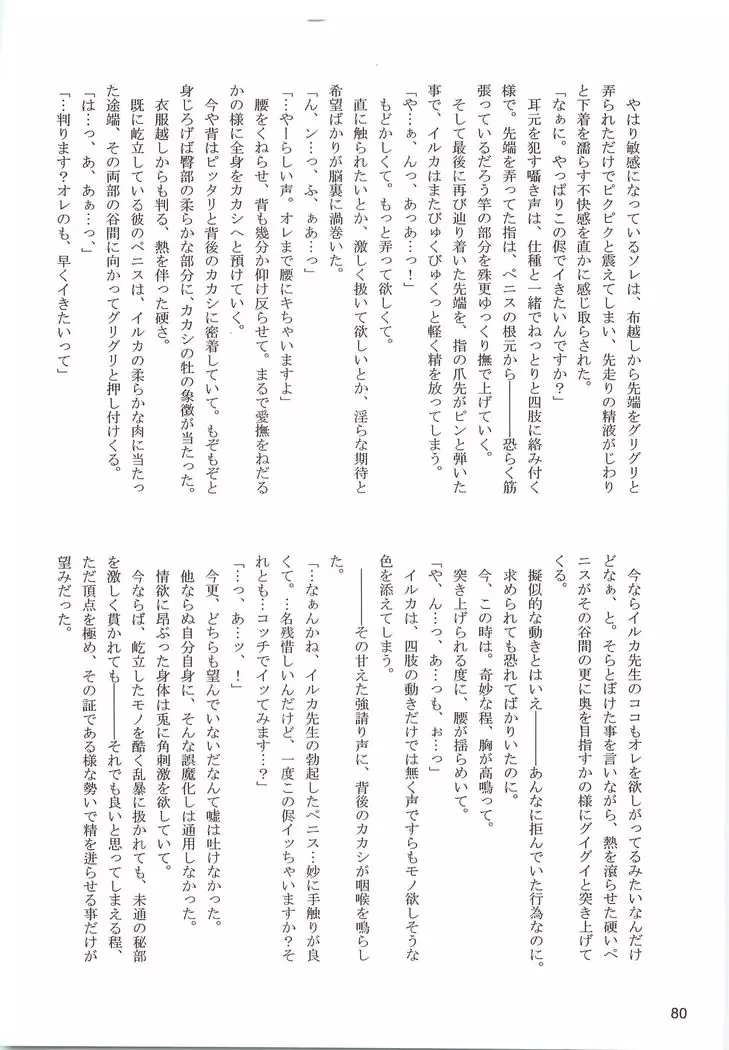 やはり敏感になっているソレは、布越しから先端をグリグリと
弄られただけでピクピクと震えてしまい、先走りの精液がじわり
と下着を濡らす不快感を直かに感じ取らされた。
「なぁに。やっぱりこの侭でイきたいんですか?」
耳元を犯す囁き声は、仕種と一緒でねっとりと四肢に絡み付く
様で。先端を弄ってた指は、ペニスの根元から――――恐らく筋
張っているだろう竿の部分を殊更ゆっくり撫で上げていく。
そして最後に再び辿り着いた先端を、指の爪先がピンと弾いた
事で、イルカはまたびゅくびゅくっと軽く精を放ってしまう。
「や…ぁ、んっ、あっあ…っ!」
もどかしくて。もっと弄って欲しくて。
直に触られたいとか、激しく扱いて欲しいとか、淫らな期待と
希望ばかりが脳裏に渦巻いた。
「ん、ン…っ、ふ、ぁあ…っ」
「…やーらしい声。オレまで腰にキちゃいますよ」
腰をくねらせ、背も幾分か仰け反らせて。まるで愛撫をねだる
かの様に全身をカカシへと預けていく。
今や背はピッタリと背後のカカシに密着していて。もぞもぞと
身じろげば臀部の柔らかな部分に、カカシの牡の象徴が当たった。
衣服越しからも判る、熱を伴った硬さ。
既に屹立している彼のペニスは、イルカの柔らかな肉に当たっ
た途端、その両部の谷間に向かってグリグリと押し付けくる。
「は…っ、あ、あぁ…っ、」
「…判ります?オレのも、早くイきたいって」
今ならイルカ先生のココもオレを欲しがってるみたいなんだけ
どなぁ、と。そらとぼけた事を言いながら、熱を滾らせた硬いペ
ニスがその谷間の更に奥を目指すかの様にグイグイと突き上げて
くる。
擬似的な動きとはいえ――――あんなに拒んでいた行為なのに。
求められても恐れてばかりいたのに。
今、この時は。奇妙な程、胸が高鳴って。
突き上げられる度に、腰が揺らめいて。
「や、ん…っ、あ…っも、ぉ…っ」
イルカは、四肢の動きだけでは無く声ですらもモノ欲しそうな
色を添えてしまう。
――――その甘えた強請り声に、背後のカカシが咽喉を鳴らし
た。
「…なぁんかね、イルカ先生の勃起したペニス…妙に手触りが良
くて。…名残惜しいんだけど、一度この侭イッちゃいますか?そ
れとも…コッチでイッてみます…?」
「…っ、あ…ッ、!」
今更、どちらも望んでいないだなんて嘘は吐けなかった。
他ならぬ自分自身に、そんな誤魔化しは通用しなかった。
情欲に昂ぶった身体は兎に角刺激を欲していて。
今ならば、屹立したモノを酷く乱暴に扱かれても、未通の秘部
を激しく貫かれても――――それでも良いと思ってしまえる程、
ただ頂点を極め、その証である様な勢いで精を迸らせる事だけが
望みだった。
80